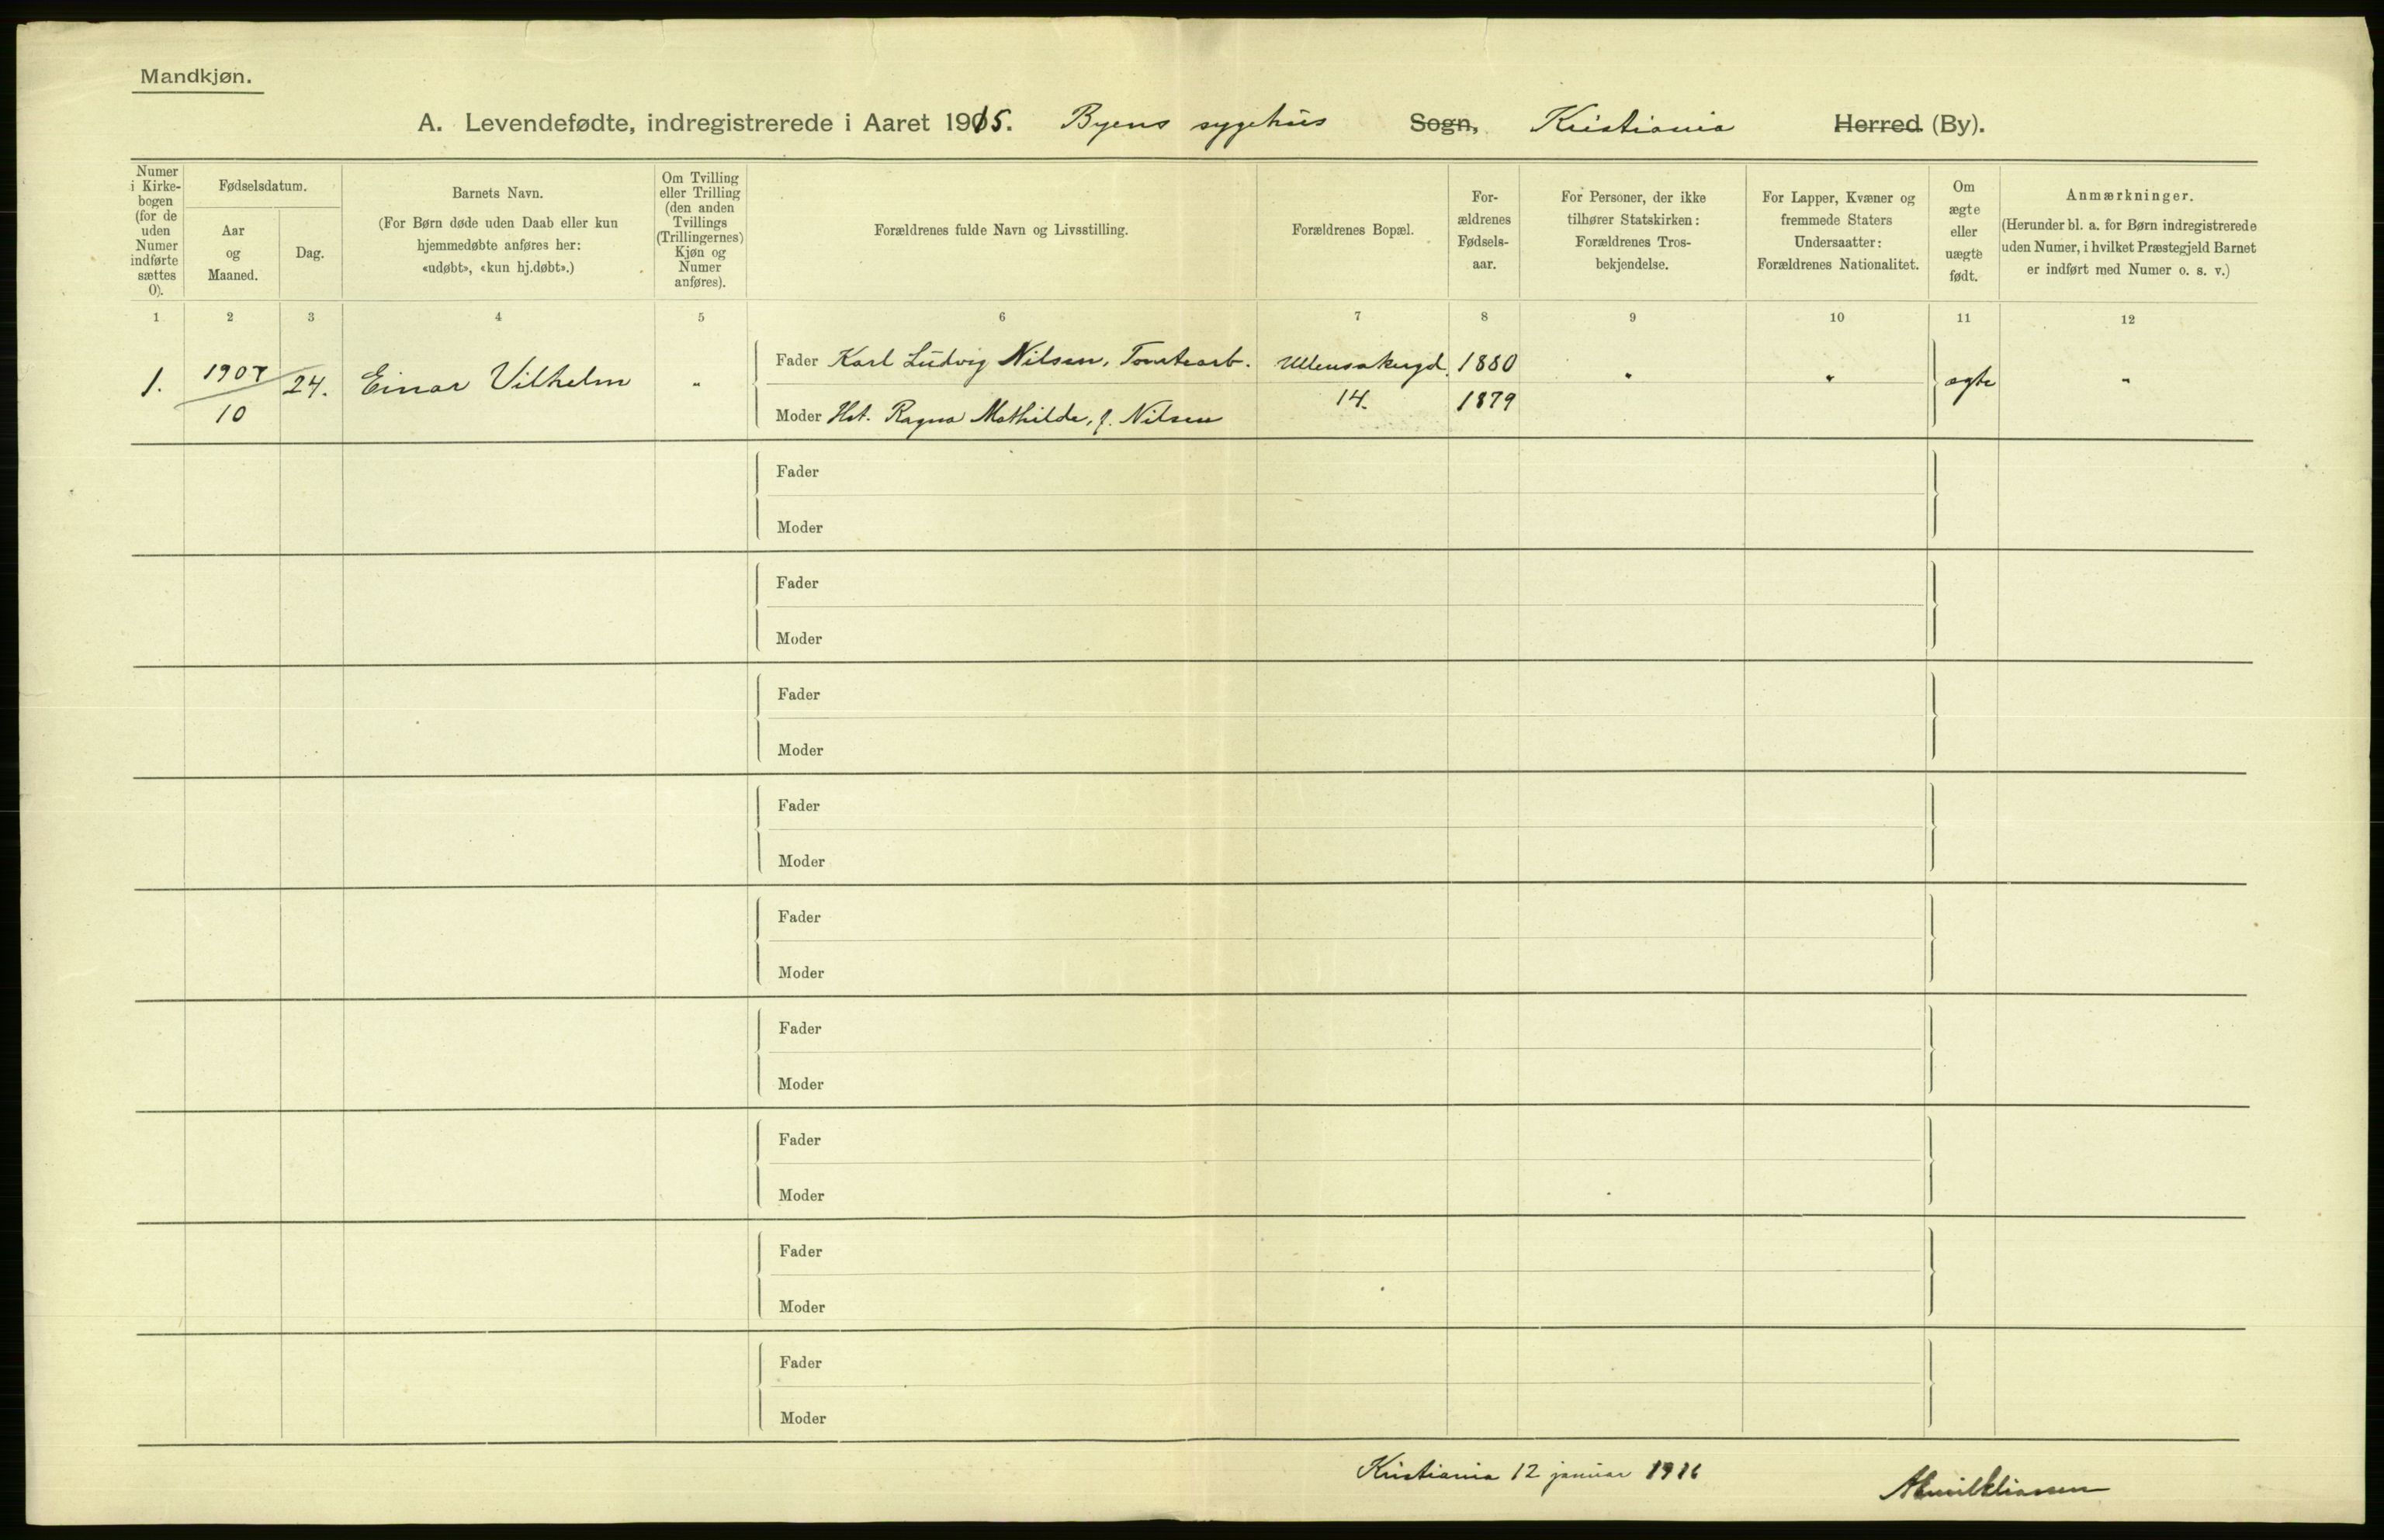 Mandkjøn.
A. Levendefødte, indregistrerede i Aaret 1915. Byens sygehus Sogn, Kristiania Herred (By).
Numer i Kirke-bogen (for de uden Numer indførte sættes 0).
Fødselsdatum.
Aar og Maaned.
Dag.
Barnets Navn.
(For Børn døde uden Daab eller kun
hjemmedøbte anføres her:
«udøbt», «kun hj.døbt».)
Om Tvilling
eller Trilling
(den anden
Tvillings
(Trillingernes)
Kjøn og
Numer
anføres).
Forældrenes fulde Navn og Livsstilling.
Forældrenes Bopæl.
For-
ældrenes
Fødsels-
aar.
For Personer, der ikke
tilhører Statskirken:
Forældrenes Tros-
bekjendelse.
For Lapper, Kvæner og
fremmede Staters
Undersaatter:
Forældrenes Nationalitet.
Om
ægte
eller
uægte
født.
Anmærkninger.
(Herunder bl. a. for Børn indregistrerede
uden Numer, i hvilket Præstegjeld Barnet
er indført med Numer o. s. v.)
1 2 3 4 5 6 7 8 9 10 11 12
1. 1907 24. Einar Vilhelm " Fader Karl Ludvig Nilsen, Tomtearb. Ullensakergd. 1880 " " ægte "
10 Moder Hst. Ragna Mathilde, f. Nilsen 14. 1879
Fader
Moder
Fader
Moder
Fader
Moder
Fader
Moder
Fader
Moder
Fader
Moder
Fader
Moder
Fader
Moder
Fader
Moder
Kristiania 12 januar 1916